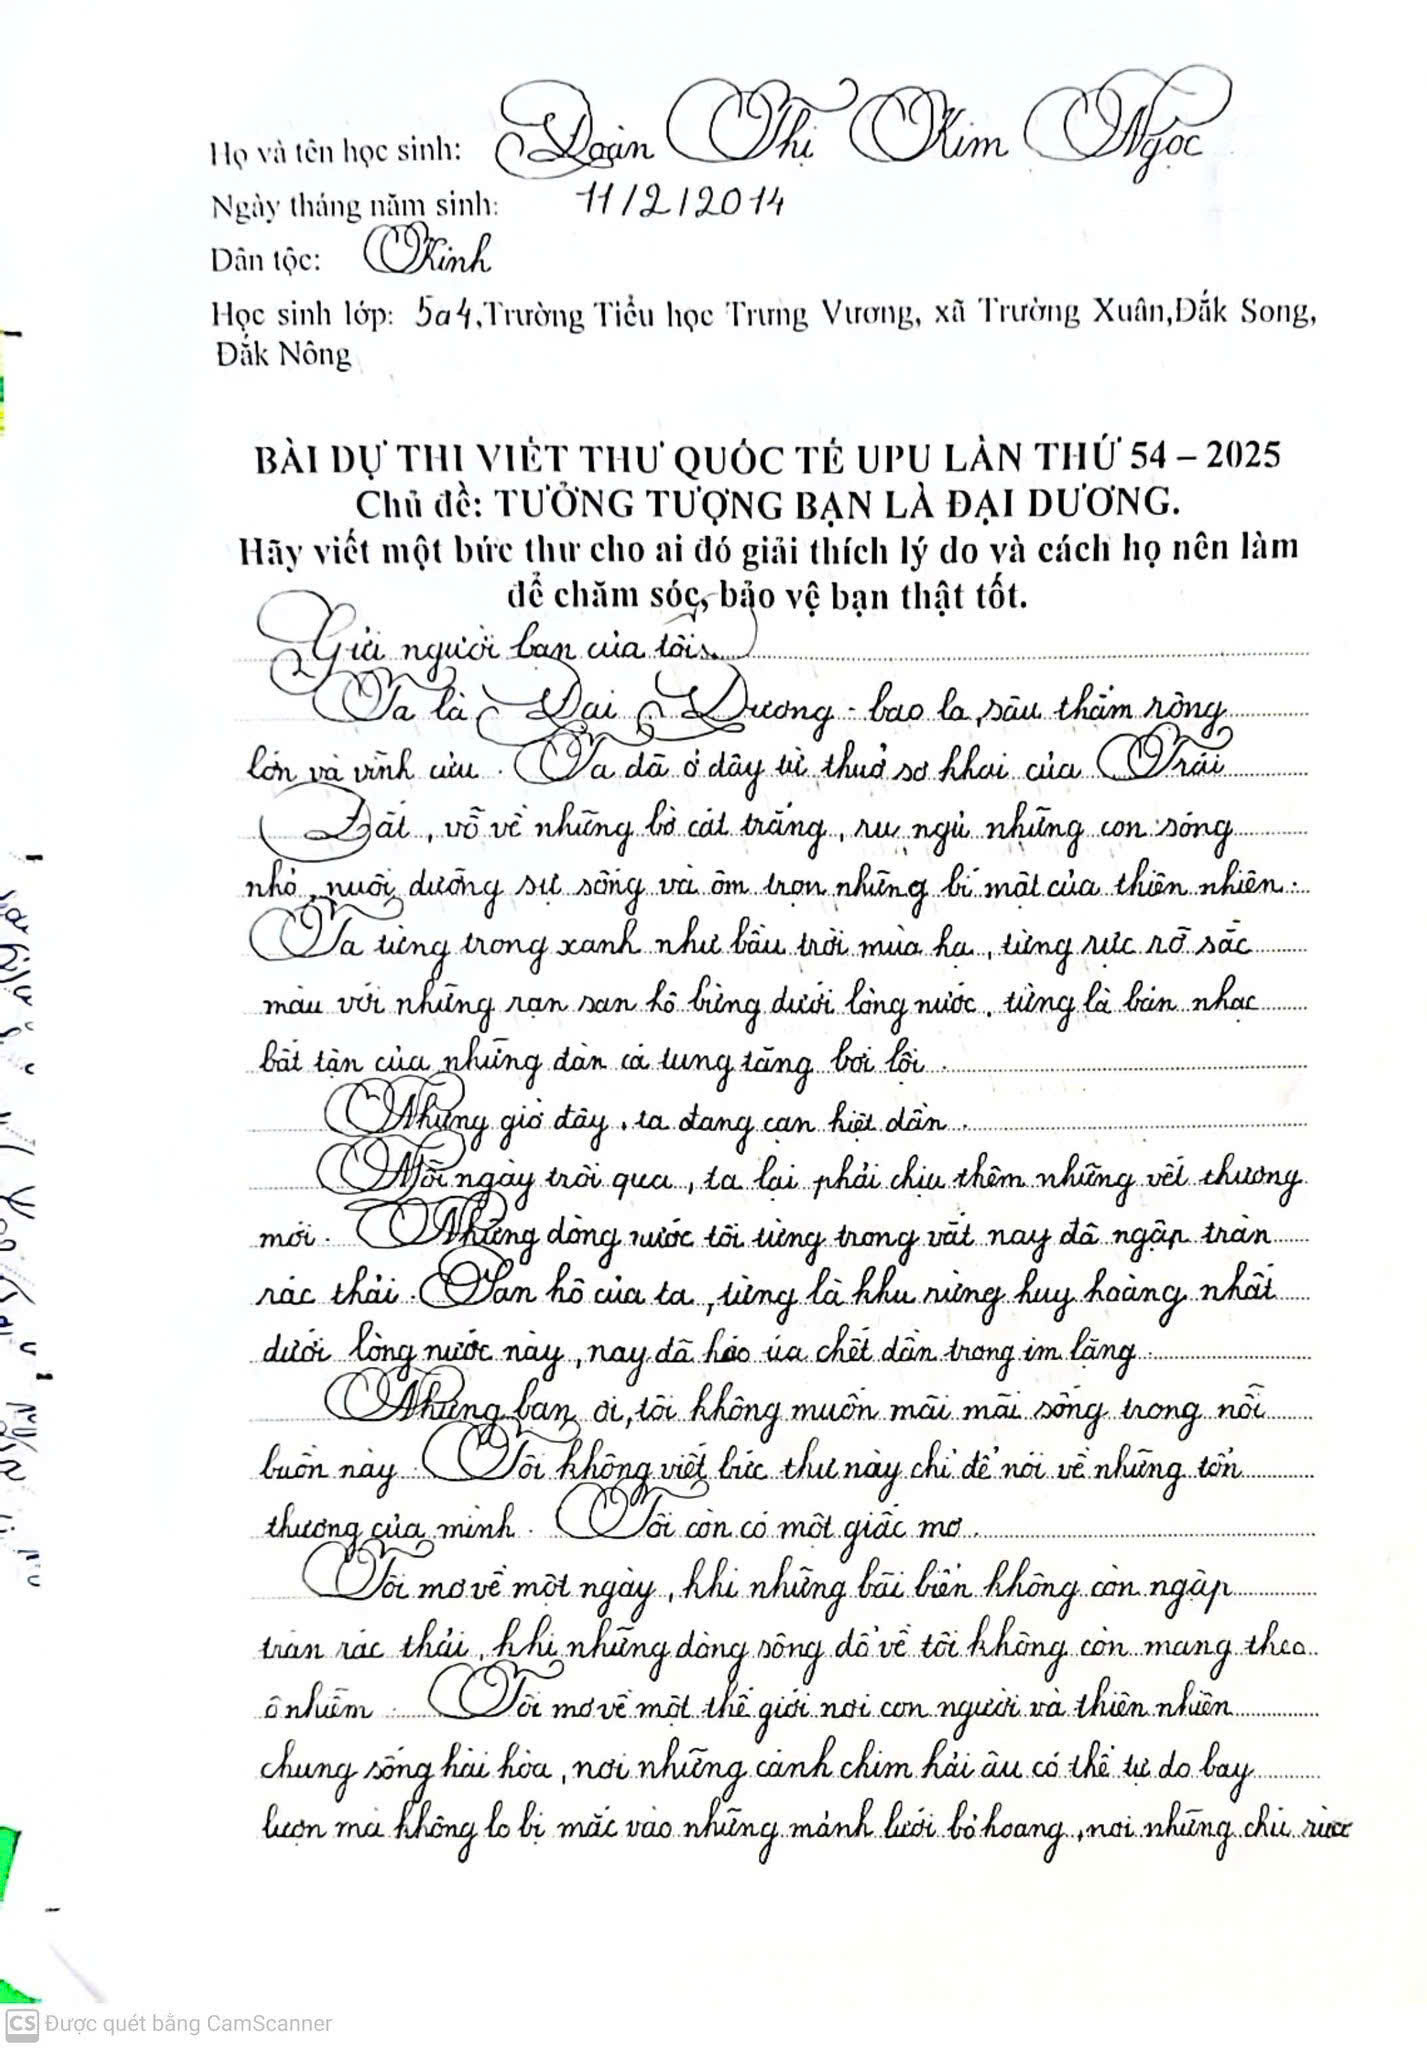 Họ và tên học sinh: Đoàn Thị Kim Ngọc
Ngày tháng năm sinh: 11/2/2014
Dân tộc: Kinh
Học sinh lớp: 5a4, Trường Tiểu học Trưng Vương, xã Trường Xuân, Đắk Song,
Đắk Nông
BÀI DỰ THI VIẾT THƯ QUỐC TẾ UPU LẦN THỨ 54 – 2025
Chủ đề: TƯỞNG TƯỢNG BẠN LÀ ĐẠI DƯƠNG.
Hãy viết một bức thư cho ai đó giải thích lý do và cách họ nên làm
để chăm sóc, bảo vệ bạn thật tốt.
Gửi người bạn của tôi,
Ta là Đại Dương - bao la, sâu thẳm rộng
lớn và vĩnh cửu. Ta đã ở đây từ thuở sơ khai của Trái
Đất, vỗ về những bờ cát trắng, ru ngủ những con sóng
nhỏ, nuôi dưỡng sự sống và ôm trọn những bí mật của thiên nhiên.
Ta từng trong xanh như bầu trời mùa hạ, từng rực rỡ sắc
màu với những rạn san hô bừng dưới lòng nước, từng là bản nhạc
bất tận của những đàn cá tung tăng bơi lội.
Nhưng giờ đây, ta đang cạn kiệt dần.
Mỗi ngày trôi qua, ta lại phải chịu thêm những vết thương
mới. Những dòng nước tôi từng trong vắt nay đã ngập tràn
rác thải. San hô của ta, từng là khu rừng huy hoàng nhất
dưới lòng nước này, nay đã héo úa chết dần trong im lặng.
Nhưng bạn ơi, tôi không muốn mãi mãi sống trong nỗi
buồn này. Tôi không viết bức thư này chỉ để nói về những tổn
thương của mình. Tôi còn có một giấc mơ.
Tôi mơ về một ngày, khi những bãi biển không còn ngập
tràn rác thải, khi những dòng sông đổ về tôi không còn mang theo
ô nhiễm. Tôi mơ về một thế giới nơi con người và thiên nhiên
chung sống hài hòa, nơi những cánh chim hải âu có thể tự do bay
lượn mà không lo bị mắc vào những mảnh lưới bỏ hoang, nơi những chú rùa
CS Được quét bằng CamScanner